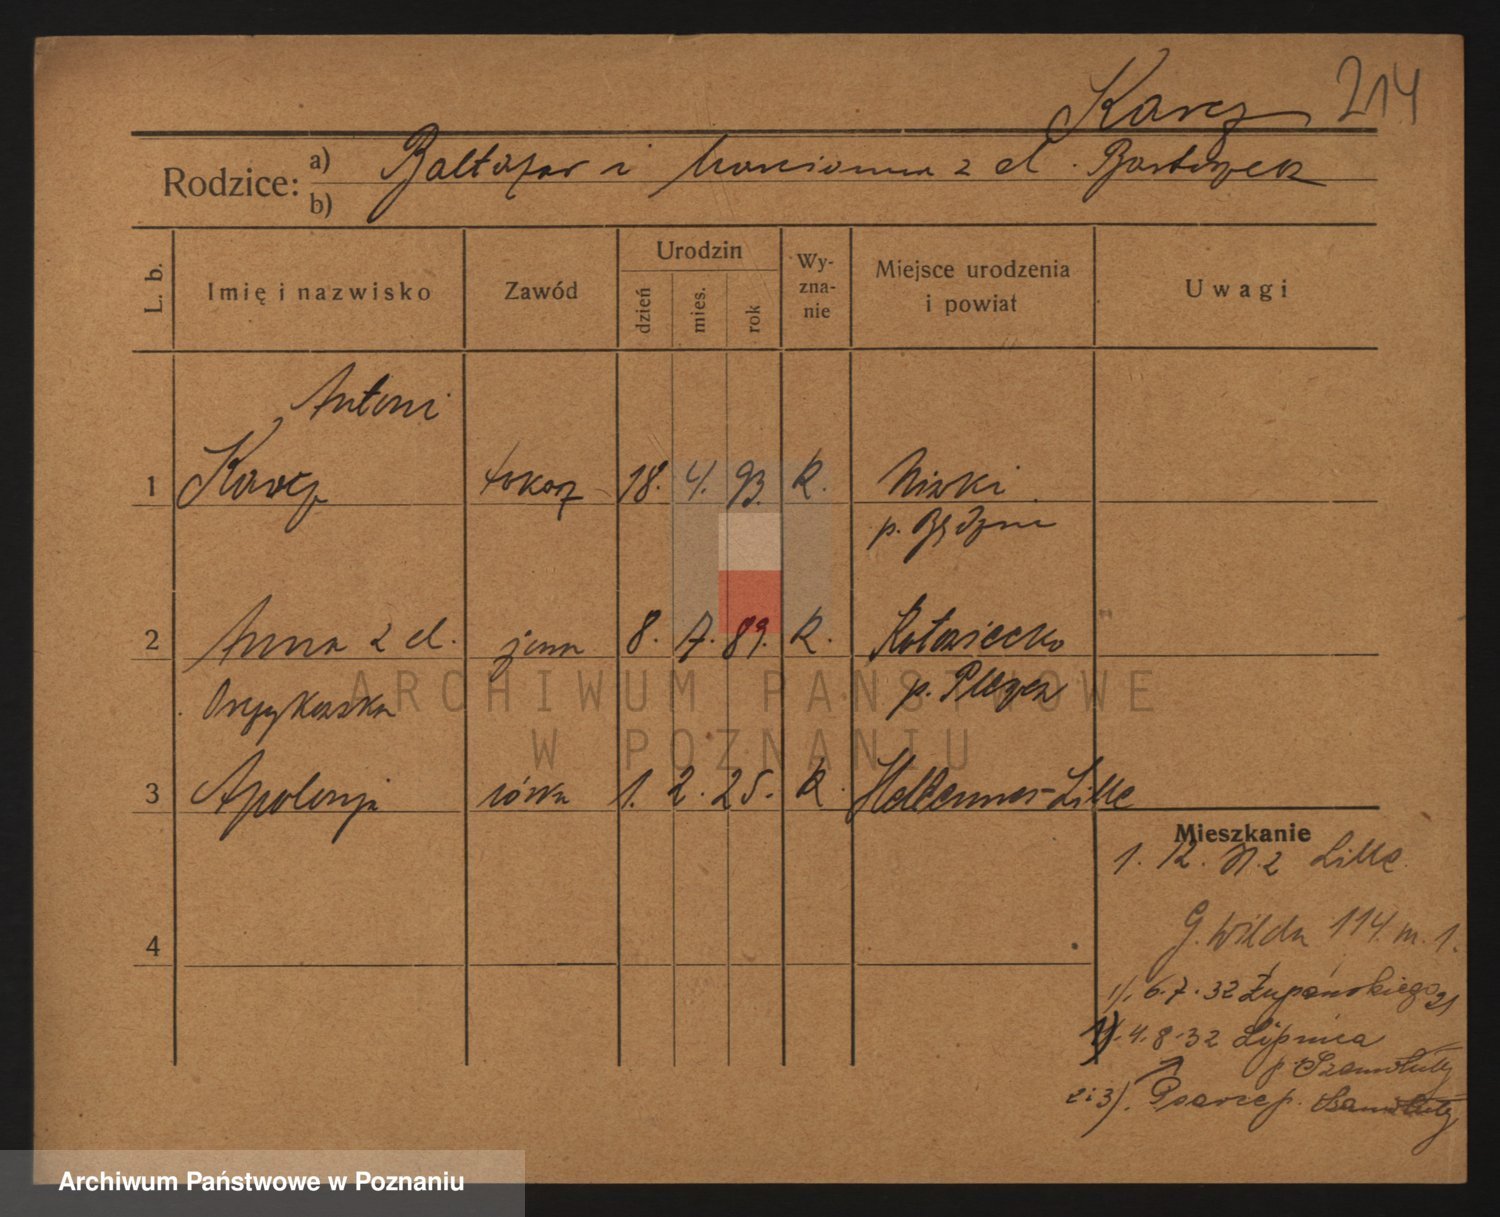 Karcz 214
Rodzice: a) Baltazar i Marianna z d. Bartoszek
b)
L. b. Imię i nazwisko Zawód Urodzin dzień mies. rok Wyznanie Miejsce urodzenia i powiat Uwagi
Antoni
1 Karcz tokarz 18. 4. 93. k. Niwki
p. Będzin
2 Anna z d. żona 8. 7. 89. k.
p.
3 Apolonja córka 1. 2. 25. k. Hellemmes-Lille
Mieszkanie
1. 12. Lille
G. Wilda 114. m. 1.
4
1/. 6.7.32 Żupańskiego 21
1). 4.8.32 Lipnica
p. Szamotuły
2 i 3). Psarce p. Szamotuły
ARCHIWUM PAŃSTWOWE
W POZNANIU
Archiwum Państwowe w Poznaniu